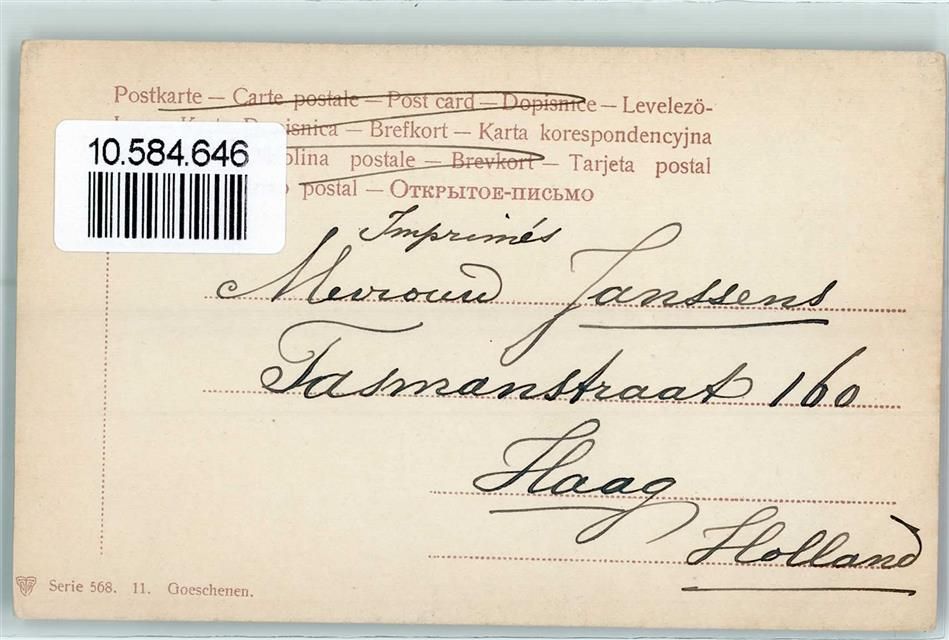 Postkarte – Carte postale – Post card – Dopisnice – Levelezö-
Dopisnica – Brefkort – Karta korespondencyjna
10.584.646
postale – Brevkort – Tarjeta postal
postal – Открытое-письмо
Imprimés
Mevrouw Janssens
Tasmanstraat 160
Haag
Holland
Serie 568. 11. Goeschenen.